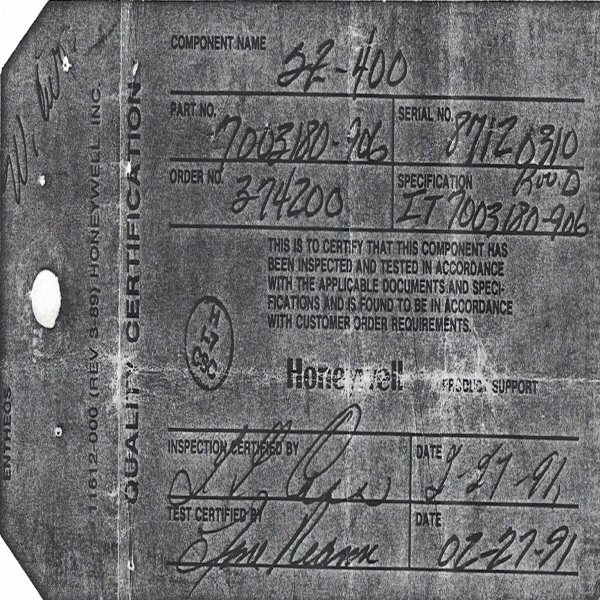 COMPONENT NAME
SZ-400
PART NO.
7003180-906
SERIAL NO.
87120310
ORDER NO.
374200
SPECIFICATION
Rev. D
IT 7003180-906
THIS IS TO CERTIFY THAT THIS COMPONENT HAS
BEEN INSPECTED AND TESTED IN ACCORDANCE
WITH THE APPLICABLE DOCUMENTS AND SPECI-
FICATIONS AND IS FOUND TO BE IN ACCORDANCE
WITH CUSTOMER ORDER REQUIREMENTS.
Honeywell PRODUCT SUPPORT
INSPECTION CERTIFIED BY
DATE
2-27-91
TEST CERTIFIED BY
DATE
02-27-91
QUALITY CERTIFICATION
11612-000 (REV 3-89) HONEYWELL INC.
ENTHEOS